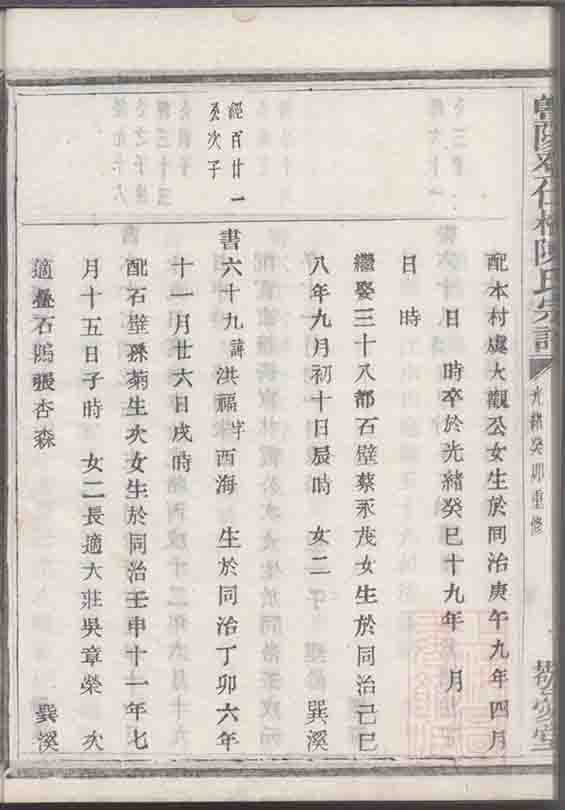 陳氏宗譜
光緒癸卯重修
配本村虞大觀公女生於同治庚午九年四月
日 時卒於光緒癸巳十九年 月
日 時
繼娶三十八都石壁蔡永茂女生於同治己巳
八年九月初十日辰時 女二 巽溪
經百廿一
癸次子
書六十九諱洪福字西海 生於同治丁卯六年
十一月廿六日戌時
配石壁孫菊生次女生於同治壬申十一年七
月十五日子時 女二長適大莊吳章榮 次
適疊石鴟張杏森 巽溪